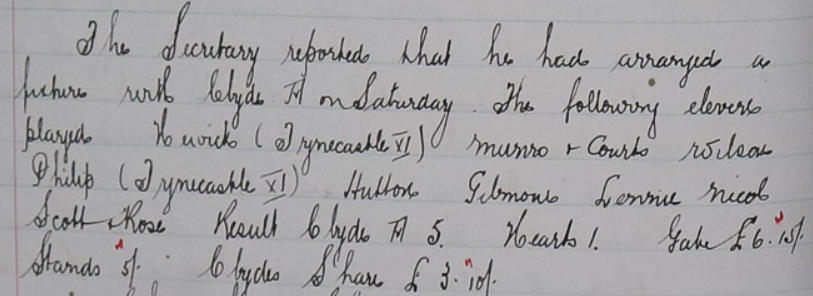 The Secretary reported that he had arranged a
fixture with Clyde A on Saturday. The following elevens
played Hewick (Tynecastle XI) Munro + Couts Wilson
Philip (Tynecastle XI) Hutton Gilmour Lennie Nicol
Scott + Rose Result Clyde A 5. Hearts 1. Gate £6.15/-
Stands 5/- Clydes Share £3.10/-